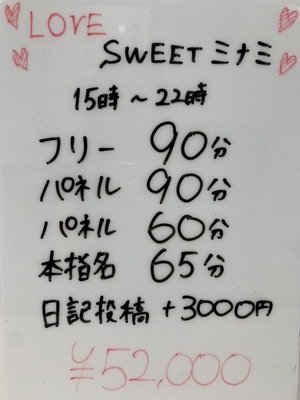 LOVE
SWEETミナミ
15時～22時
フリー 90分
パネル 90分
パネル 60分
本指名 65分
日記投稿 +3000円
¥52,000